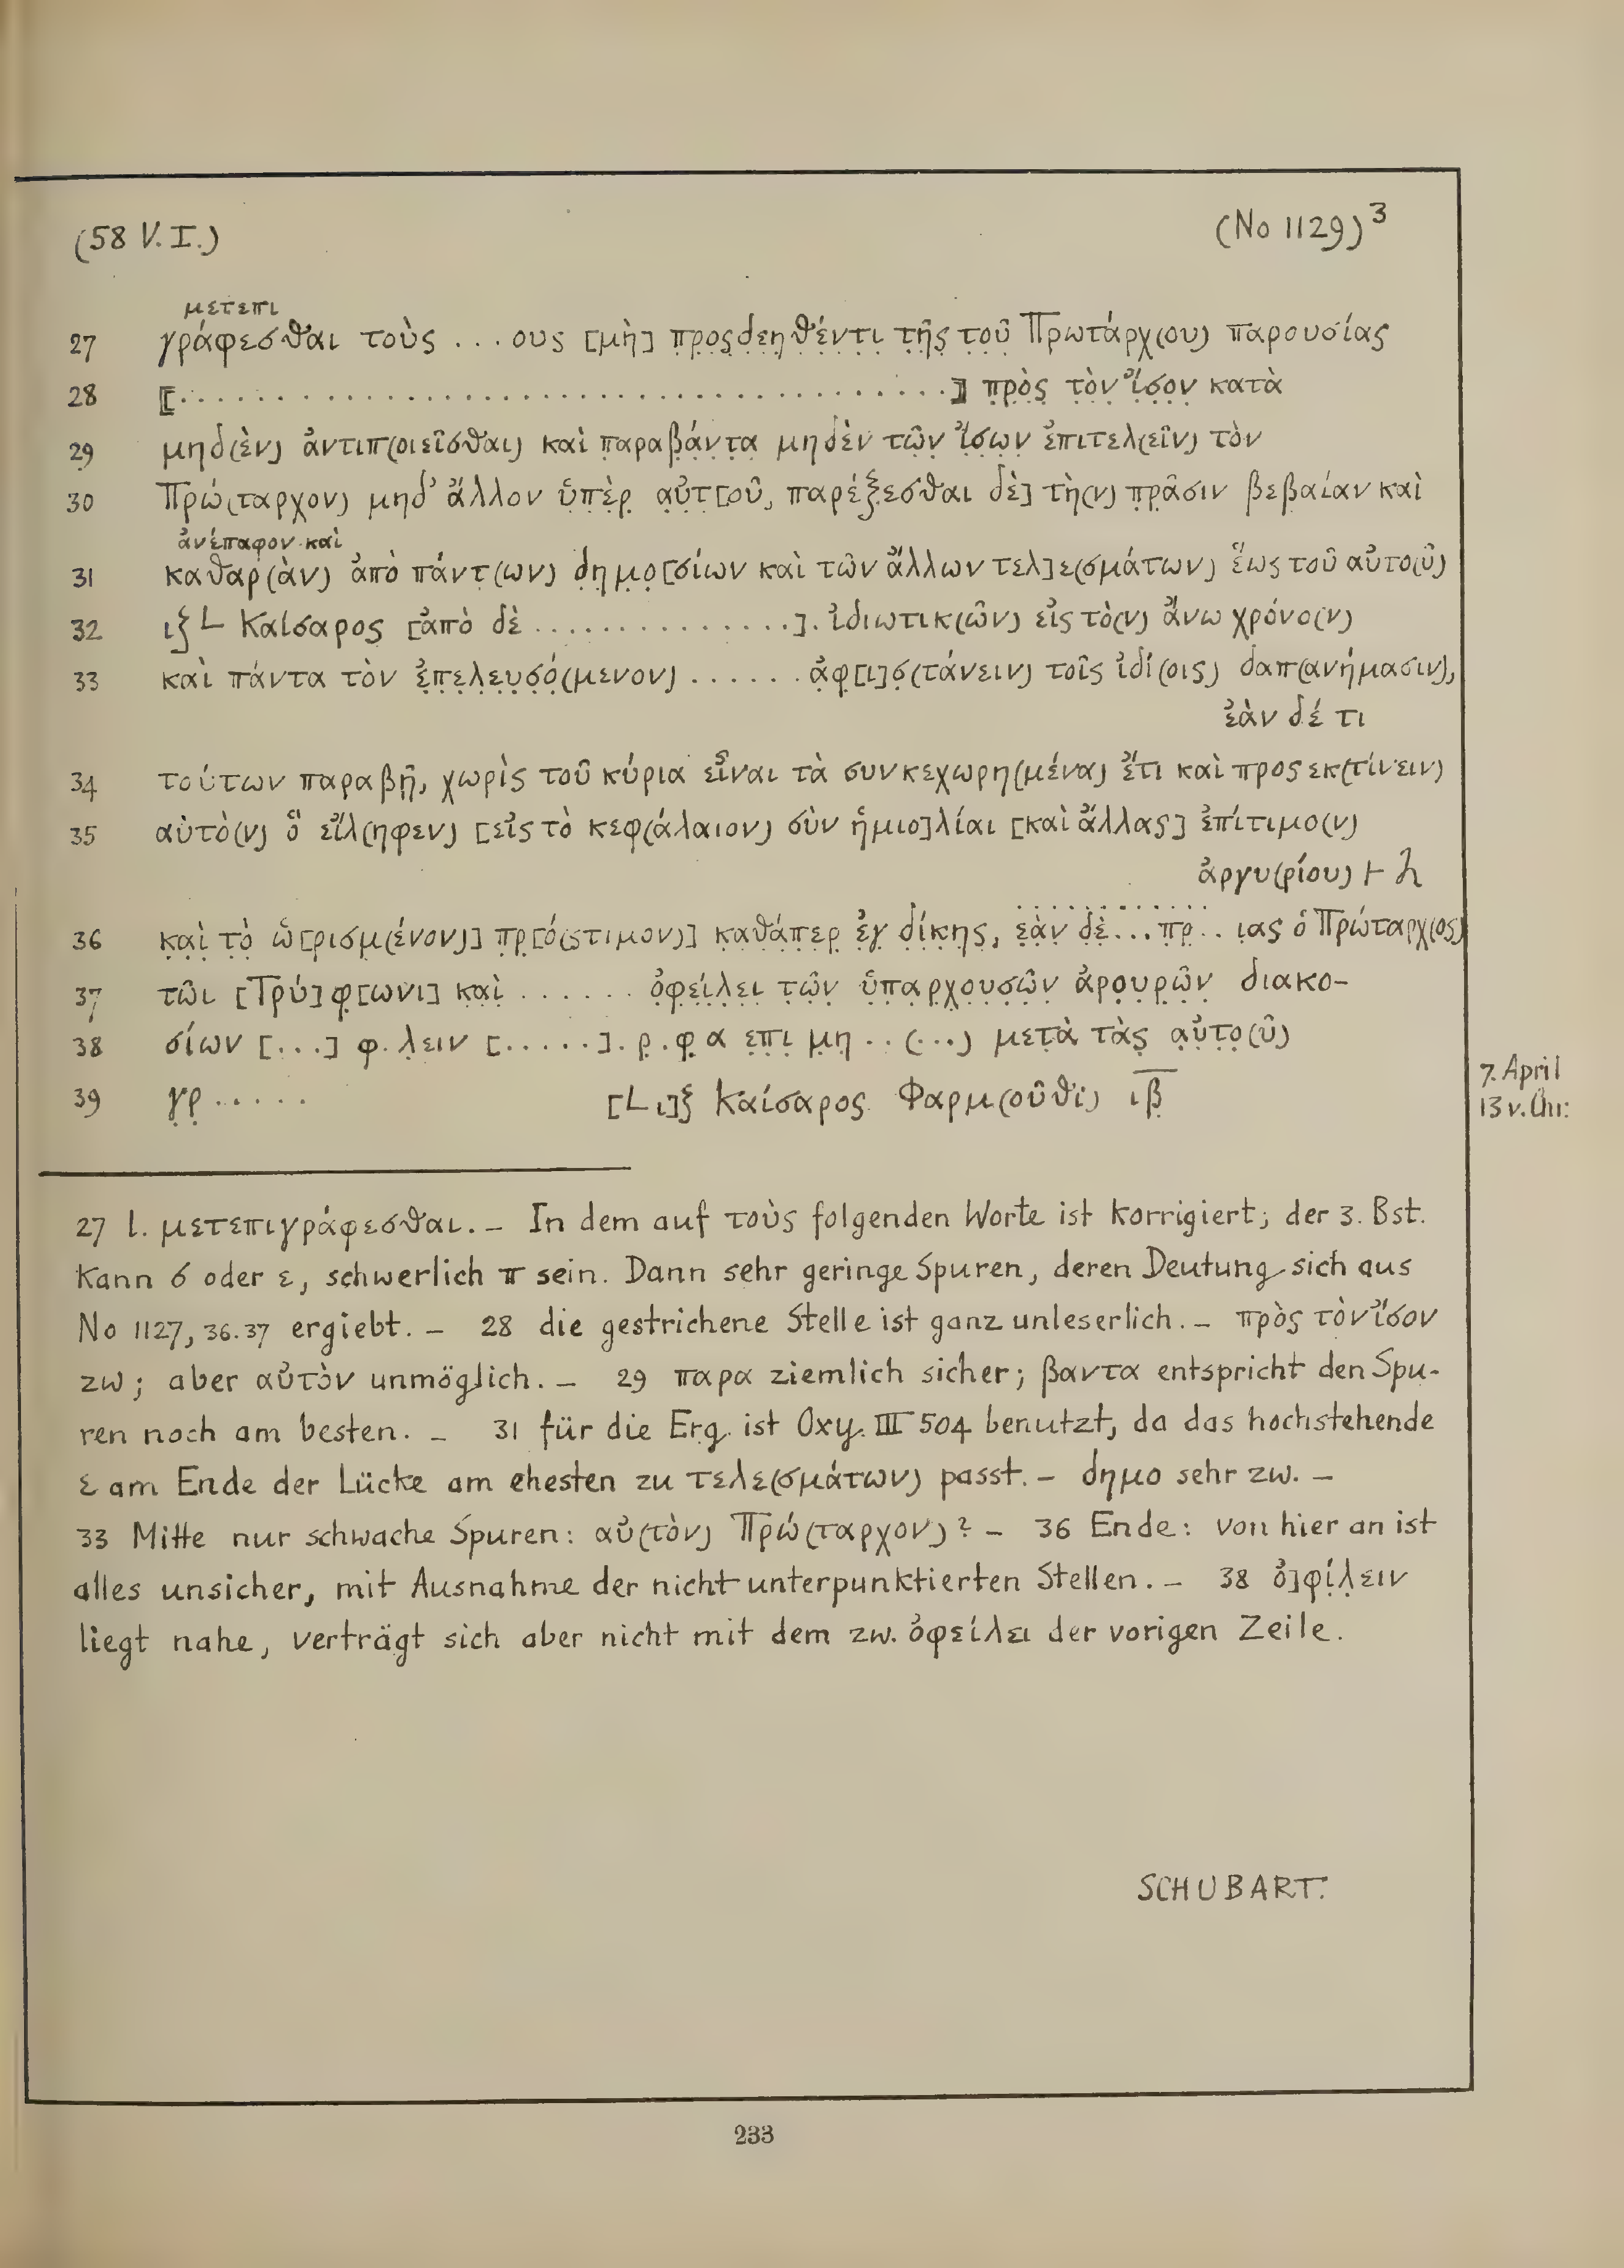 (58 V. I.) (No 1129)³
μετεπι
27 γράφεσθαι τοὺς ... ους [μὴ] προςδεηθέντι τῆς τοῦ Πρωτάρχ(ου) παρουσίας
28 ⟦.....................................⟧ πρὸς τὸν ἴσον κατὰ
29 μηδ(ὲν) ἀντιπ(οιεῖσθαι) καὶ παραβάντα μηδὲν τῶν ἴσων ἐπιτελ(εῖν) τὸν
30 Πρώ(ταρχον) μηδ' ἄλλον ὑπὲρ αὐτ[οῦ, παρέξεσθαι δὲ] τὴ(ν) πρᾶσιν βεβαίαν καὶ
ἀνέπαφον καὶ
31 καθαρ(ὰν) ἀπὸ πάντ(ων) δημο[σίων καὶ τῶν ἄλλων τελ]ε(σμάτων) ἕως τοῦ αὐτο(ῦ)
32 ιξ L Καίσαρος [ἀπὸ δὲ ..............]. ἰδιωτικ(ῶν) εἰς τὸ(ν) ἄνω χρόνο(ν)
33 καὶ πάντα τὸν ἐπελευσό(μενον) ...... ἀφ[ι]σ(τάνειν) τοῖς ἰδί(οις) δαπ(ανήμασιν),
ἐὰν δέ τι
34 τούτων παραβῇ, χωρὶς τοῦ κύρια εἶναι τὰ συνκεχωρη(μένα) ἔτι καὶ προςεκ(τίνειν)
35 αὐτὸ(ν) ὃ εἴλ(ηφεν) [εἰς τὸ κεφ(άλαιον) σὺν ἡμιο]λίαι [καὶ ἄλλας] ἐπίτιμο(ν)
ἀργυ(ρίου) ͰϠ
36 καὶ τὸ ὡ[ρισμ(ένον)] πρ[ό(στιμον)] καθάπερ ἐγ δίκης, ἐὰν δὲ ... πρ .. ιας ὁ Πρώταρχ(ος)
37 τῶι [Τρύ]φ[ωνι] καὶ ...... ὀφείλει τῶν ὑπαρχουσῶν ἀρουρῶν διακο-
38 σίων [...] φ. λειν [.....]. ρ. φα επι μη .. (...) μετὰ τὰς αὐτο(ῦ)
39 γρ ..... [L ι]ξ Καίσαρος Φαρμ(οῦθι) ιβ̅
7. April
13 v. Chr.
27 l. μετεπιγράφεσθαι. – In dem auf τοὺς folgenden Worte ist korrigiert; der 3. Bst.
kann σ oder ε, schwerlich π sein. Dann sehr geringe Spuren, deren Deutung sich aus
No 1127, 36.37 ergiebt. – 28 die gestrichene Stelle ist ganz unleserlich. – πρὸς τὸν ἴσον
zw; aber αὐτὸν unmöglich. – 29 παρα ziemlich sicher; βαντα entspricht den Spu-
ren noch am besten. – 31 für die Erg. ist Oxy. III 504 benutzt, da das hochstehende
ε am Ende der Lücke am ehesten zu τελε(σμάτων) passt. – δημο sehr zw. –
33 Mitte nur schwache Spuren: αὐ(τὸν) Πρώ(ταρχον)? – 36 Ende: von hier an ist
alles unsicher, mit Ausnahme der nicht unterpunktierten Stellen. – 38 ὀ]φίλειν
liegt nahe, verträgt sich aber nicht mit dem zw. ὀφείλει der vorigen Zeile.
SCHUBART.
233